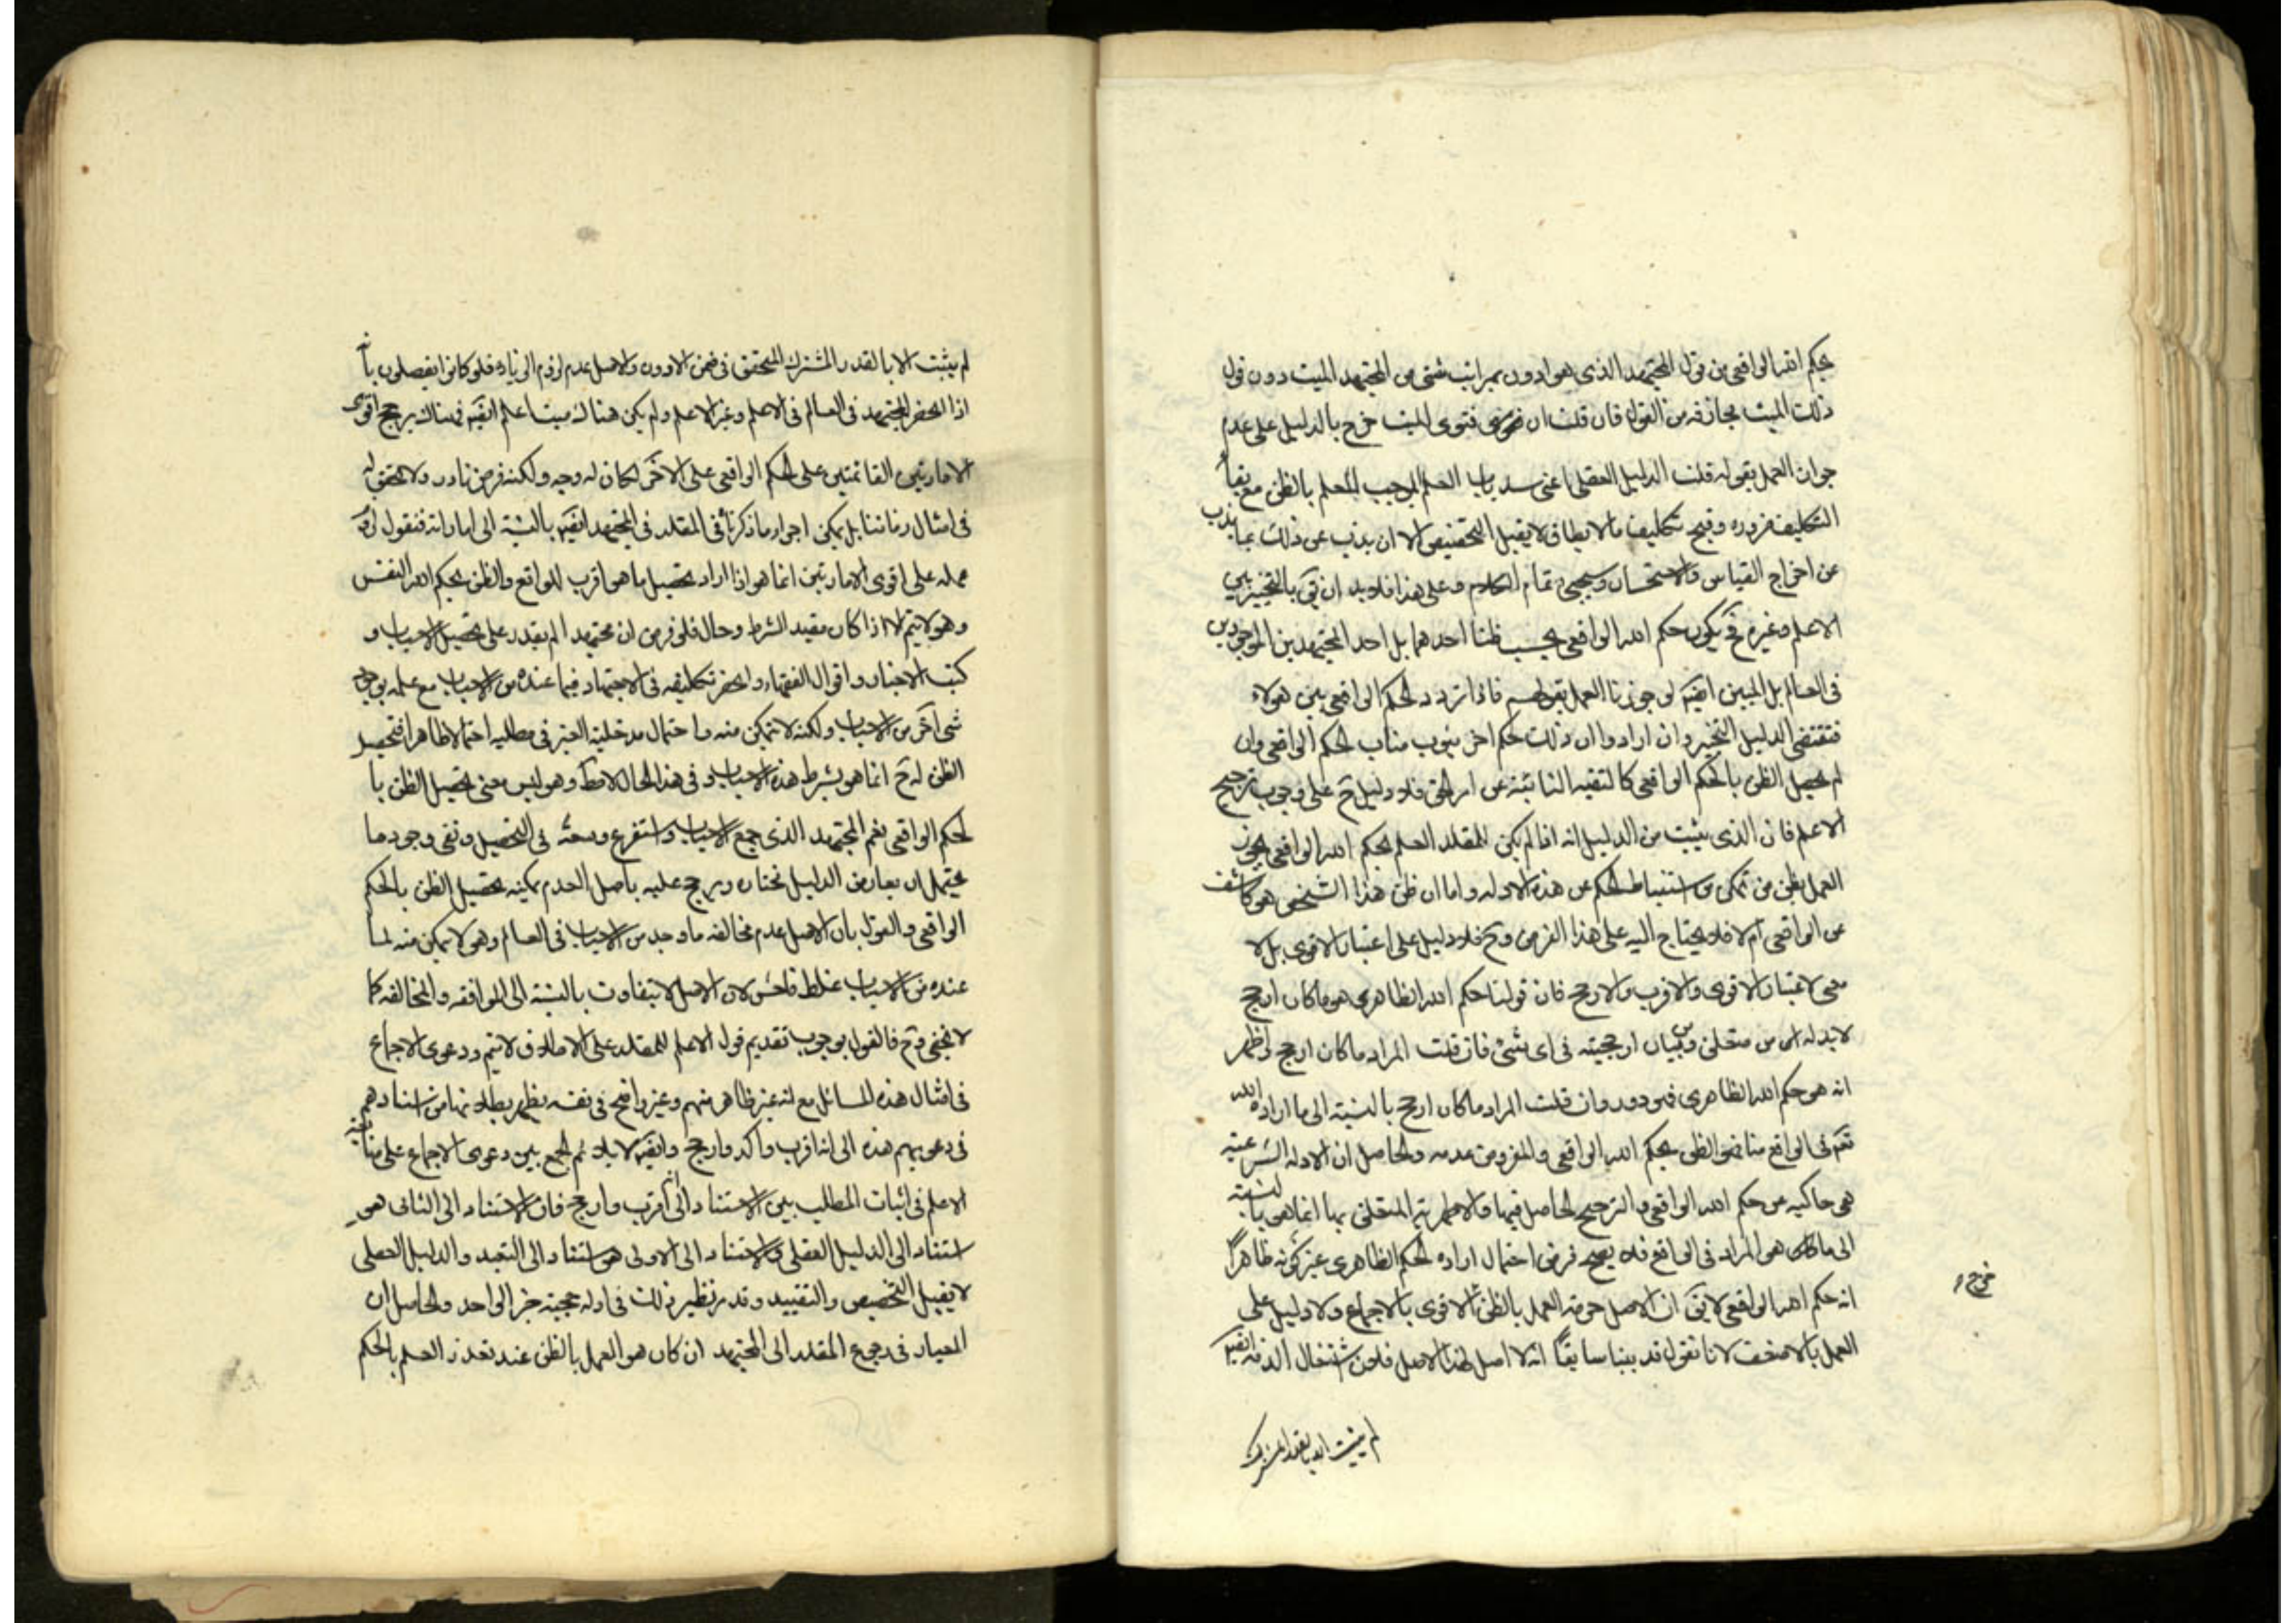 بحكم الله الواقعي من قول المجتهد الذي هو ادون بمراتب شتى من المجتهد الميت دون قول
ذلك الميت مجازفه من القول فان قلت ان فتوى الميت خرج بالدليل على عدم
جواز العمل بقوله قلت الدليل العقلي اعني سد باب العلم الموجب للعلم بالظن مع بقاء
التكليف ضروره وقبح تكليف ما لا يطاق لا يقبل التخصيص الا ان يذب عن ذلك بما يذب
عن اخراج القياس والاستحسان وسيجئ تمام الكلام وعلى هذا فلابد ان يق بالتخيير بين
الاعلم وغيره فح يكون حكم الله الواقعي بحسب ظننا احدهما بل احد المجتهدين الموجودين
في العالم بل الميتين ايضا لو جوزنا العمل بقولهم فاذا تردد الحكم الواقعي بين هولاء
فتقتضي الدليل التخيير وان ارادوا ان ذلك حكم اخر ينوب مناب الحكم الواقعي وان
لم يحصل الظن بالحكم الواقعي كالتقيه النائبة عن امر الحق فلا دليل ح على وجوب ترجيح
الاعلم فان الذي يثبت من الدليل انه اذا لم يكن للمقلد العلم بحكم الله الواقعي يجوز
العمل بظن من تمكن من استنباط الحكم عن هذه الادله واما ان ظن هذا الشخص هو كاشف
عن الواقعي ام لا فلا يحتاج اليه على هذا الفرض وح فلا دليل على اعتبار الاقوى بل لا
معنى لاعتبار الاقوى والاقرب والارجح فان قولنا حكم الله الظاهري هو ما كان ارجح
لابد له من متعلق وبيان ارجحيته في اى شئ فان قلت المراد ما كان ارجح واظهر
انه هو حكم الله الظاهري فهو دور وان قلت المراد ما كان ارجح بالنسبة الى ما اراده الله
تعم في الواقع مناقض للظن بحكم الله الواقعي والمفروض عدمه والحاصل ان الادله الشرعية
هي حاكيه عن حكم الله الواقعي والترجيح الحاصل فيها والاظهريه المتعلق بها انما هي بالنسبة
الى ما كان هو المراد في الواقع فلا يصح فرض احتمال اراده الحكم الظاهري غير كونه ظاهراً
انه حكم الله الواقعي لا يق ان الاصل حرمة العمل بالظن الاقوى بالاجماع ولا دليل على
خرج
العمل بالاضعف لانا نقول قد بينا سابقاً انه لا اصل لهذا الاصل فلان اشتغال الذمه ايضا
لم يثبت الا بالقدر المشترك
لم يثبت الا بالقدر المشترك المتحقق في ضمن الادون والاصل عدم لزوم الزياده فلو كانوا يفصلون بانه
اذا انحصر المجتهد في العالم في الاعلم وغير الاعلم ولم يكن هناك ميتا اعلم ايضا فهناك يرجح اقوى
الامارتين القائمتين على الحكم الواقعي على الاخر لكان له وجه ولكنه فرض نادر ولا تحقق له
في امثال زماننا بل يمكن اجراء ما ذكرنا في المقلد في المجتهد ايضا بالنسبة الى اماراته فنقول ان
عمله على اقوى الامارتين انما هو اذا اراد تحصيل ما هو اقرب للواقع والظن بحكم الله النفس
وهو لا يتم الا اذا كان مقيد الشرط وحال فلو فرض ان مجتهدا لم يقدر على تحصيل الاسباب و
كتب الاخبار واقوال الفقهاء وانحصر تكليفه في الاجتهاد فيما عنده من الاسباب مع علمه بوجود
شئ آخر من الاسباب ولكنه لا يتمكن منه واحتمال مدخلية الغير في مطلبه احتمالا ظاهرا فتحصيل
الظن له ح انما هو بشرط هذه الاسباب وفي هذا الحال لا مط وهو ليس معنى تحصيل الظن با
لحكم الواقعي نعم المجتهد الذي جمع الاسباب واستفرغ وسعه في التحصيل ونفى وجود ما
يحتمل ان يعارض الدليل مختاره ويرجح عليه باصل العدم يمكنه تحصيل الظن بالحكم
الواقعي والقول بان الاصل عدم مخالفه ما وجد من الاسباب في العالم وهو لا يمكن منه لما
عنده من الاسباب غلط فاحش لان الاصل لا يتفاوت بالنسبة الى الموافقه والمخالفه كما
لا يخفى وح فالقول بوجوب تقديم قول الاعلم للمقلد على الاطلاق لا يتم ودعوى الاجماع
في امثال هذه المسائل مع انه غير ظاهر منهم وغير واضح في نفسه يظهر بطلانها من استنادهم
في دعويهم هذه الى انه اقرب واكد وارجح وايضا لا يلايم الجمع بين دعوى الاجماع على متابعة
الاعلم في اثبات المطلب بين الاستناد الى انه اقرب وارجح فان الاستناد الى الثاني هو
استناد الى الدليل العقلي والاستناد الى الاولى هو استناد الى التعبد والدليل العقلي
لا يقبل التخصيص والتقييد وقد مر نظير ذلك في ادله حجية خبر الواحد والحاصل ان
المعيار في رجوع المقلد الى المجتهد ان كان هو العمل بالظن عند تعذر العلم بالحكم